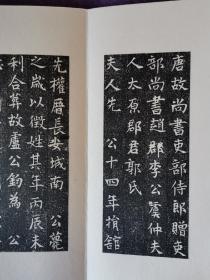 唐故尚書吏部侍郎贈吏
部尚書趙郡李公虞仲夫
人太原郡君郭氏
夫人先公十四年捐舘
先權厝長安城南公薨
之歲以徵姓其年丙辰未
利合葬故盧公鈞為公